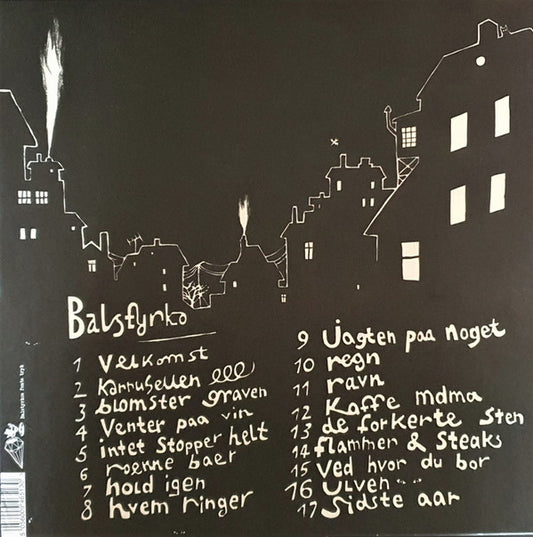 Balstyrko
1 Velkomst
2 Karrusellen
3 blomster graven
4 Venter paa vin
5 intet Stopper helt
6 roenne baer
7 hold igen
8 hvem ringer
9 Jagten paa noget
10 regn
11 ravn
12 Kaffe mdma
13 de forkerte Sten
14 flammen & Steaks
15 Ved hvor du bor
16 Ulven
17 Sidste aar